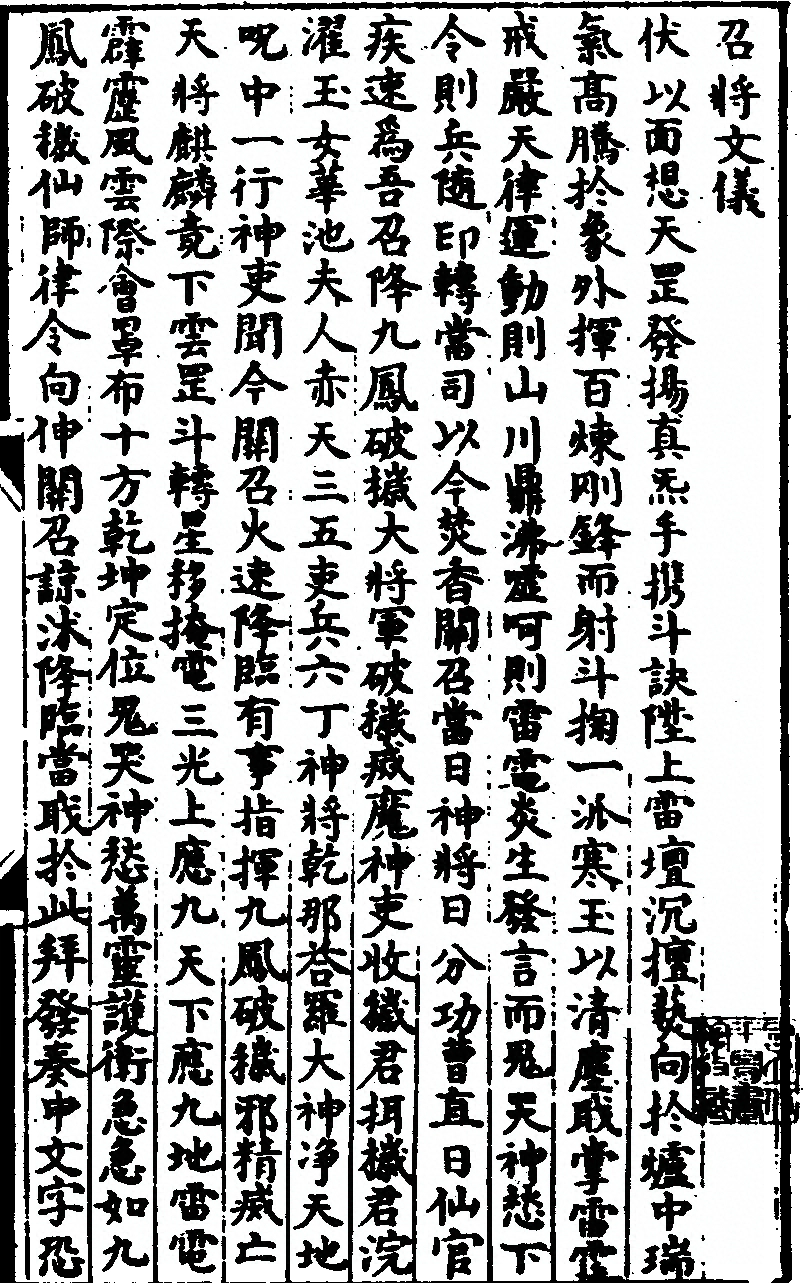 召將文儀
伏以面想天罡發揚真炁手携斗訣陞上雷壇沉檀爇向於爐中瑞
氣高騰於象外揮百煉剛鋒而射斗掬一泒寒玉以清塵職掌雷霆
戒嚴天律運動則山川鼎沸噓呵則雷電炎生發言而鬼哭神愁下
令則兵隨印轉當司以今焚香關召當日神將日分功曹直日仙官
疾速為吾召降九鳳破穢大將軍破穢威魔神吏收穢君捐穢君浣
濯玉女華池夫人赤天三五吏兵六丁神將乾那荅羅大神净天地
呪中一行神吏聞今關召火速降臨有事指揮九鳳破穢邪精威亡
天將麒麟竟下雲罡斗轉星移掩電三光上應九天下應九地雷電
霹靂風雲際會罩布十方乾坤定位鬼哭神愁萬靈護衛急急如九
鳳破穢仙師律令向伸關召諒沐降臨當職於此拜發奏申文字恐